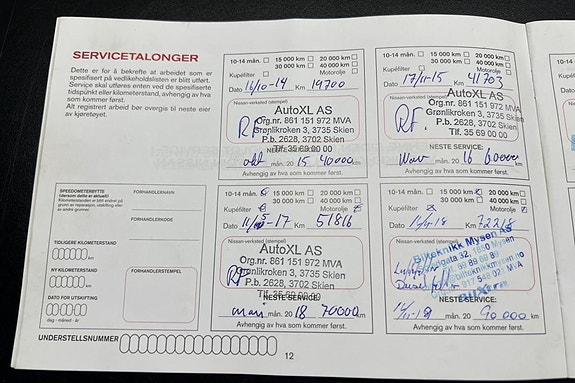 SERVICETALONGER
Dette er for å bekrefte at arbeidet som er
spesifisert på vedlikeholdslisten er blitt utført.
Service skal utføres enten ved de spesifiserte
tidspunkt eller kilometerstand, avhengig av hva
som kommer først.
Alt registrert arbeid bør overgis til neste eier
av kjøretøyet.
10-14 mån. 15 000 km 20 000 km
30 000 km 40 000 km
Kupéfilter Motorolje
Dato 16/10-14 Km 19700
Nissan-verksted (stempel)
AutoXL AS
Org.nr. 861 151 972 MVA
Grønlikroken 3, 3735 Skien
P.b. 2628, 3702 Skien
Tlf. 35 69 00 00
RF.
NESTE SERVICE:
okt mån. 20 15 40000 km
Avhengig av hva som kommer først.
10-14 mån. 15 000 km 20 000 km
30 000 km 40 000 km
Kupéfilter Motorolje
Dato 17/11-15 Km 41703
Nissan-verksted (stempel)
AutoXL AS
Org.nr. 861 151 972 MVA
Grønlikroken 3, 3735 Skien
P.b. 2628, 3702 Skien
Tlf. 35 69 00 00
RF.
NESTE SERVICE:
Nov mån. 20 16 60000 km
Avhengig av hva som kommer først.
SPEEDOMETERBYTTE
(dersom dette er aktuelt)
Kilometerstanden er blitt endret på
grunn av reparasjon, utskifting eller
av andre grunner.
TIDLIGERE KILOMETERSTAND
km
NY KILOMETERSTAND
km
DATO FOR UTSKIFTING
dag - måned - år
FORHANDLERNAVN
FORHANDLERKODE
FORHANDLERSTEMPEL
10-14 mån. 15 000 km 20 000 km
30 000 km 40 000 km
Kupéfilter Motorolje
Dato Km 51816
Nissan-verksted (stempel)
AutoXL AS
Org.nr. 861 151 972 MVA
Grønlikroken 3, 3735 Skien
P.b. 2628, 3702 Skien
Tlf. 35 69 00 00
RF
NESTE SERVICE:
mai mån. 20 18 70000 km
Avhengig av hva som kommer først.
10-14 mån. 15 000 km 20 000 km
30 000 km 40 000 km
Kupéfilter Motorolje
Dato Km 72218
Nissan-verksted (stempel)
Bilteknikk Mysen AS
32, 1850 Mysen
69 89 69 89
917 548 MVA
NESTE SERVICE:
mån. 20 90 000 km
Avhengig av hva som kommer først.
UNDERSTELLSNUMMER
12